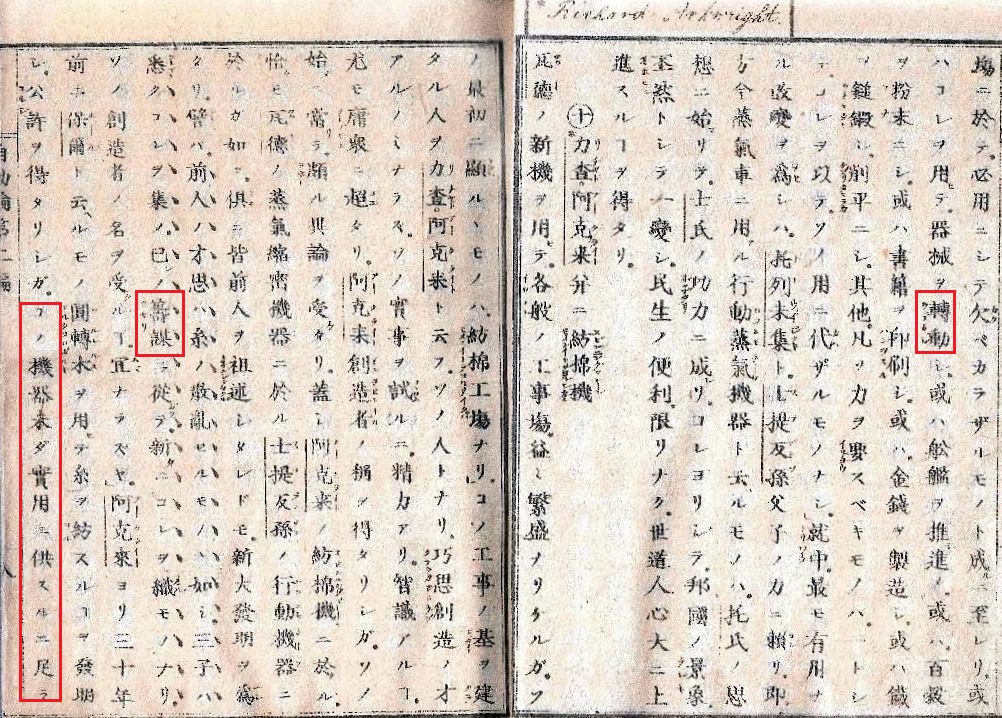 Richard Arkwright.
塲ニ於テ必用ニシテ欠ベカラザルモノト成ルニ至レリ。或
ハコレヲ用テ器械ヲ轉動シ。或ハ舩艦ヲ推進メ。或ハ百穀
ヲ粉末ニシ。或ハ書籍ヲ印刷シ。或ハ金錢ヲ製造シ。或ハ鐵
ヲ鎚鍛シ。削平ニシ。其他凡ソ力ヲ要スベキモノハ一トシ
テ。コレヲ以テソノ用ニ代ザルモノナシ。就中最モ有用ナ
ル改變ヲ爲シハ。托列未集ト士提反孫父子ノ力ニ賴リ。即
方今蒸氣車ニ用ル行動蒸氣機器ト云ルモノハ。托氏ノ思
想ニ始リテ。士氏ノ功力ニ成リ。コレヨリシテ。邦國ノ景象
丕然トシテ一變シ。民生ノ便利限リナク。世道人心大ニ上
進スルヿヲ得タリ。
㊉力査阿克来并ニ紡棉機
瓦德ノ新機ヲ用テ。各般ノ工事塲。益〻繁盛ヲナリケルガ。ソ
ノ最初ニ顯ハルヽモノハ。紡棉工塲ナリ。コノ工事ノ基ヲ建
タル人ヲ力査阿克来ト云フ。ソノ人トナリ。巧思創造ノ才
アルノミナラズ。ソノ實事ヲ試ルニ。精力アリ。智識アルヿ。
尤モ庸衆ニ超タリ。阿克来創造者ノ稱ヲ得タリシガ。ソノ
始。常ニ頗ル異論ヲ受タリ。蓋シ阿克来ノ紡棉機ニ於ル。
恰モ瓦德ノ蒸氣縮密機器ニ於ル。士提反孫ノ行動機器ニ
於ルガ如ク。俱ニ皆前人ヲ祖述シタレドモ。新大發明ヲ爲
タリ。譬バ前人ハ才思ハ糸ノ散亂セルモノヽ如シ。三子ハ
悉クコレヲ集メ。己ノ籌謀ニ從テ新ニコレヲ織モノナリ。
ソノ創造者ノ名ヲ受ルヿ宜ナラズヤ。阿克来ヨリ三十年
前ニ保爾ト云ルモノ圓轉木ヲ用テ糸ヲ紡スルヿヲ發明
シ。公許ヲ得タリシガ。コノ機器未ダ實用ニ供スルニ足ラ